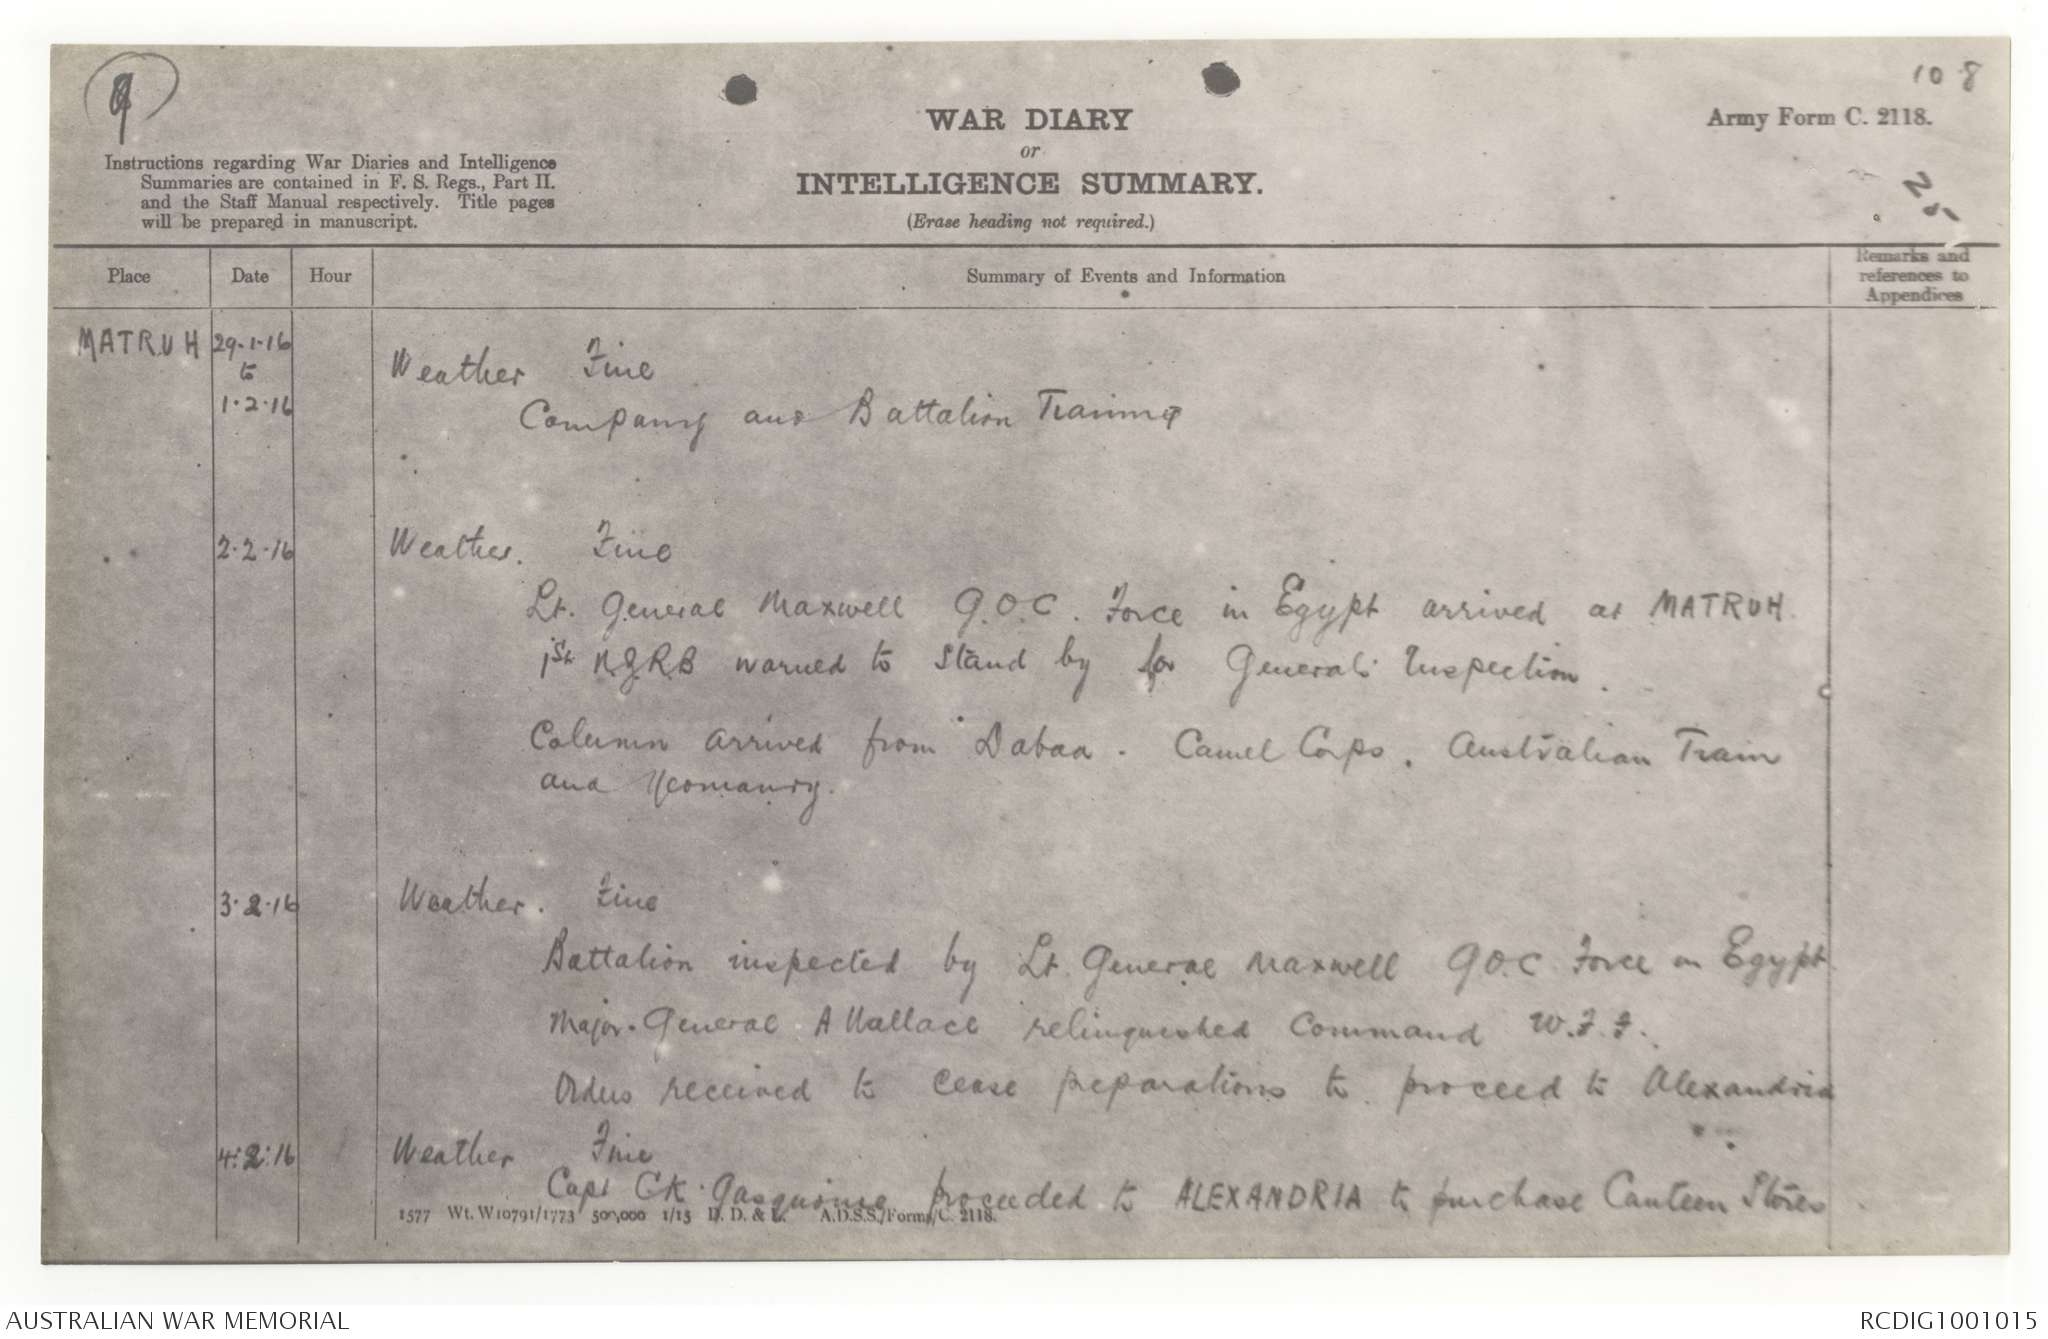 9
108
WAR DIARY
or
INTELLIGENCE SUMMARY.
(Erase heading not required.)
Army Form C. 2118.
Instructions regarding War Diaries and Intelligence
Summaries are contained in F. S. Regs., Part II.
and the Staff Manual respectively. Title pages
will be prepared in manuscript.
Place Date Hour Summary of Events and Information Remarks and
references to
Appendices
MATRUH 29.1.16
to
1.2.16
Weather Fine
Company and Battalion Training
2.2.16 Weather. Fine
Lt. General Maxwell G.O.C. Force in Egypt arrived at MATRUH.
1st NZRB warned to stand by for General's Inspection.
Column arrived from Dabaa. Camel Corps, Australian Train
and Yeomanry.
3.2.16 Weather. Fine
Battalion inspected by Lt. General Maxwell GOC Force in Egypt.
Major. General A Wallace relinquished Command W.F.F.
Orders received to cease preparations to proceed to Alexandria
4:2:16 Weather Fine
Capt CK Gasquoine proceeded to ALEXANDRIA to purchase Canteen Stores.
1577 Wt. W10791/1773 500,000 1/15 D. D. & L. A.D.S.S./Forms/C. 2118.
AUSTRALIAN WAR MEMORIAL RCDIG1001015